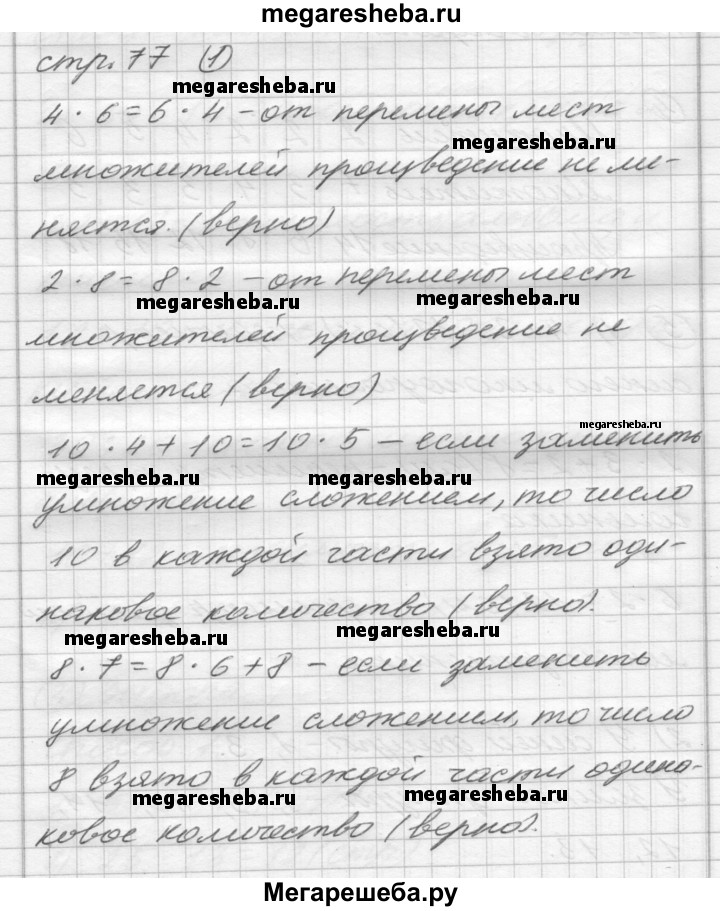 megaresheba.ru
стр. 77 (1)
megaresheba.ru
4 · 6 = 6 · 4 – от перемены мест
megaresheba.ru
множителей произведение не ме-
няется. (верно)
2 · 8 = 8 · 2 – от перемены мест
megaresheba.ru megaresheba.ru
множителей произведение не
меняется (верно)
megaresheba.ru
10 · 4 + 10 = 10 · 5 – если заменить
megaresheba.ru megaresheba.ru
умножение сложением, то число
10 в каждой части взято оди-
наковое количество (верно).
megaresheba.ru megaresheba.ru
8 · 7 = 8 · 6 + 8 – если заменить
умножение сложением, то число
8 взято в каждой части одина-
megaresheba.ru megaresheba.ru
ковое количество (верно).
Мегарешеба.ру